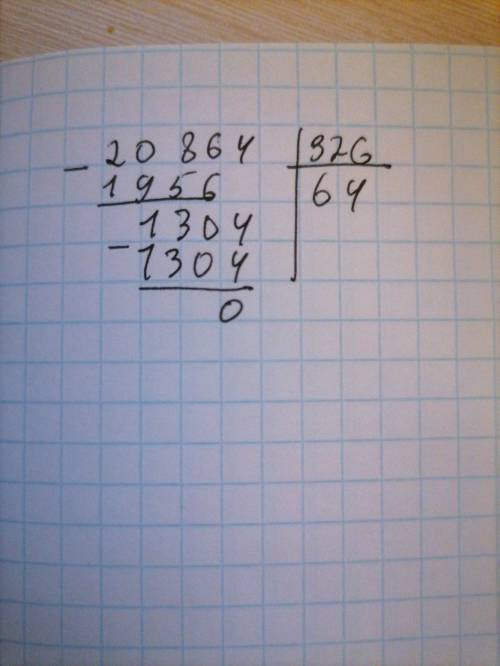 - 20864 | 326
1956 | 64
1304
- 1304
0